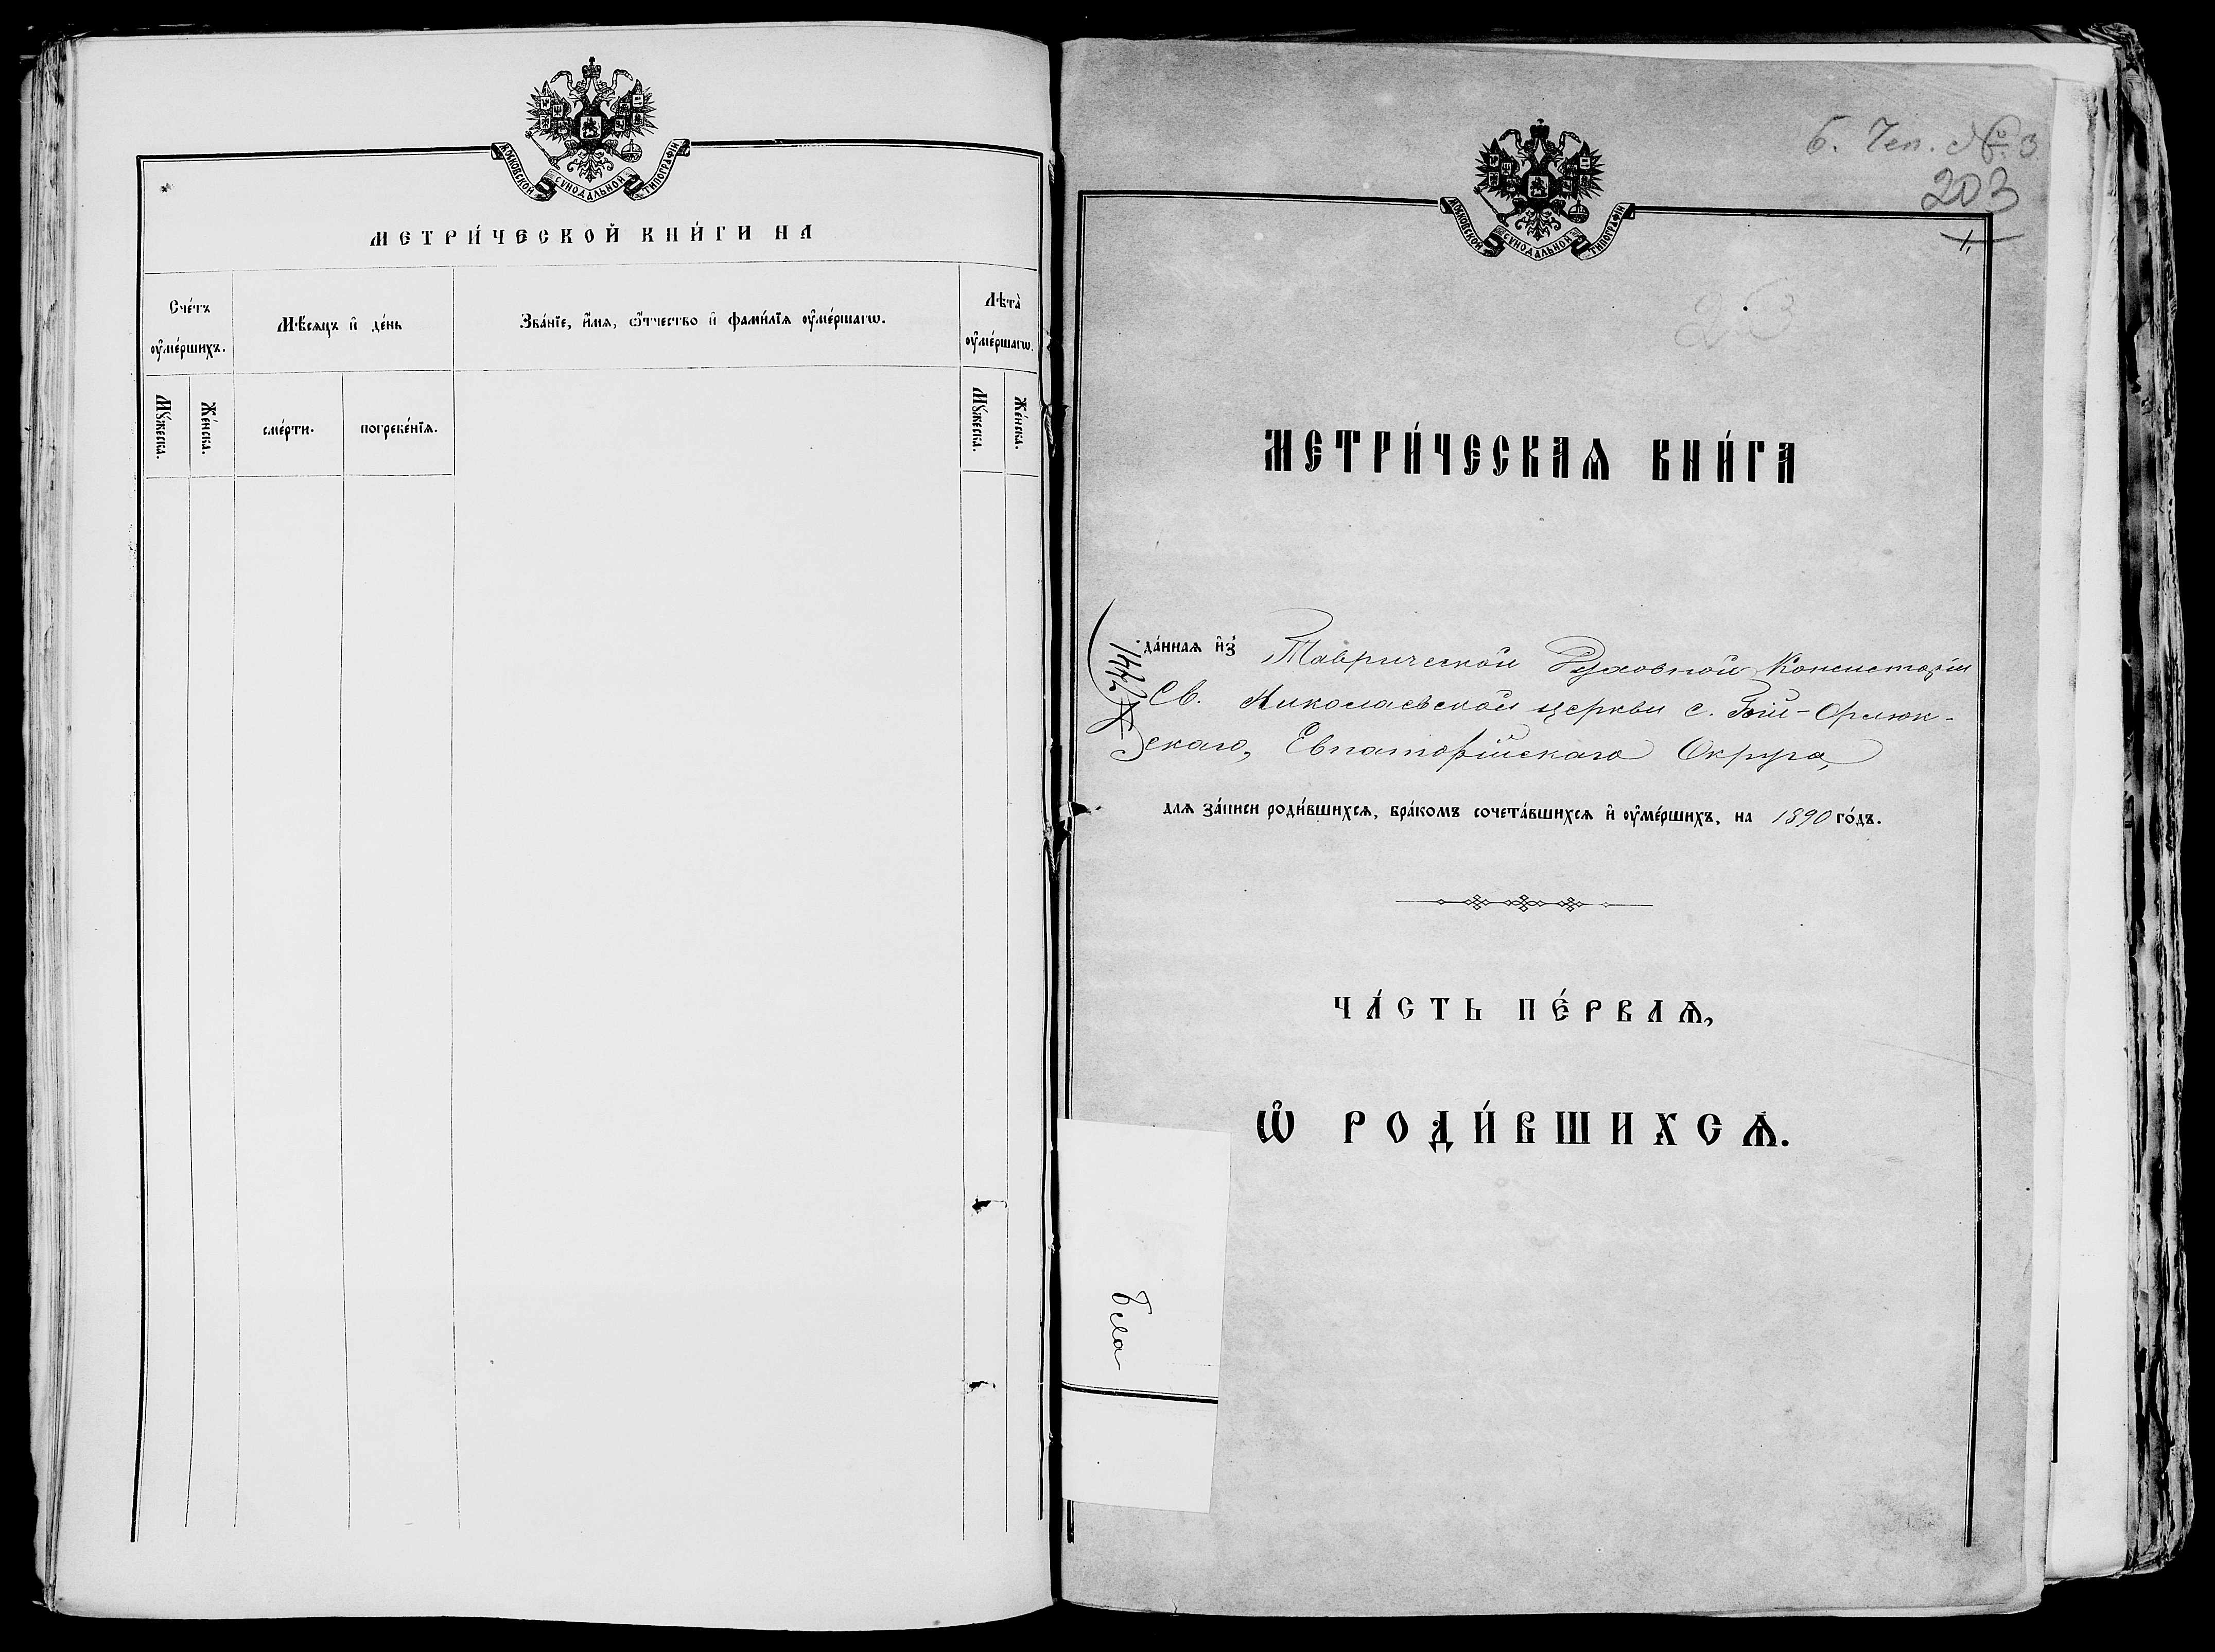 МОСКОВСКОЙ СѴНОДАЛЬНОЙ ТИПОГРАФІИ
МЕТРИ́ЧЕСКОЙ КНИ́ГИ НА
Сче́тъ оу҆ме́ршихъ.
Мѣ́сяцъ и҆ де́нь
Зва́нїе, и҆́мя, ѻ҆́тчество и҆ фами́лїя оу҆ме́ршагѡ.
Лѣта̀ оу҆ме́ршагѡ.
Мꙋ́жеска.
Же́нска.
сме́рти.
погребе́нїя.
Мꙋ́жеска.
Же́нска.
Б. Чеп. № 3
203
1.
МОСКОВСКОЙ СѴНОДАЛЬНОЙ ТИПОГРАФІИ
23
МЕТРИ́ЧЕСКАѦ КНИ́ГА
да́ннаѧ и҆з̾ Таврической Духовной Консисторіи
Св. Николаевской церкви с. Бой-Орлюк-
скаго, Евпаторійскаго Округа,
длѧ за́писи роди́вшихсѧ, бра́комъ сочета́вшихсѧ и҆ оу҆ме́ршихъ, на 1890 го́дъ.
ЧА́СТЬ ПЕ́РВАѦ,
Ѡ҆ РОДИ́ВШИХСѦ.